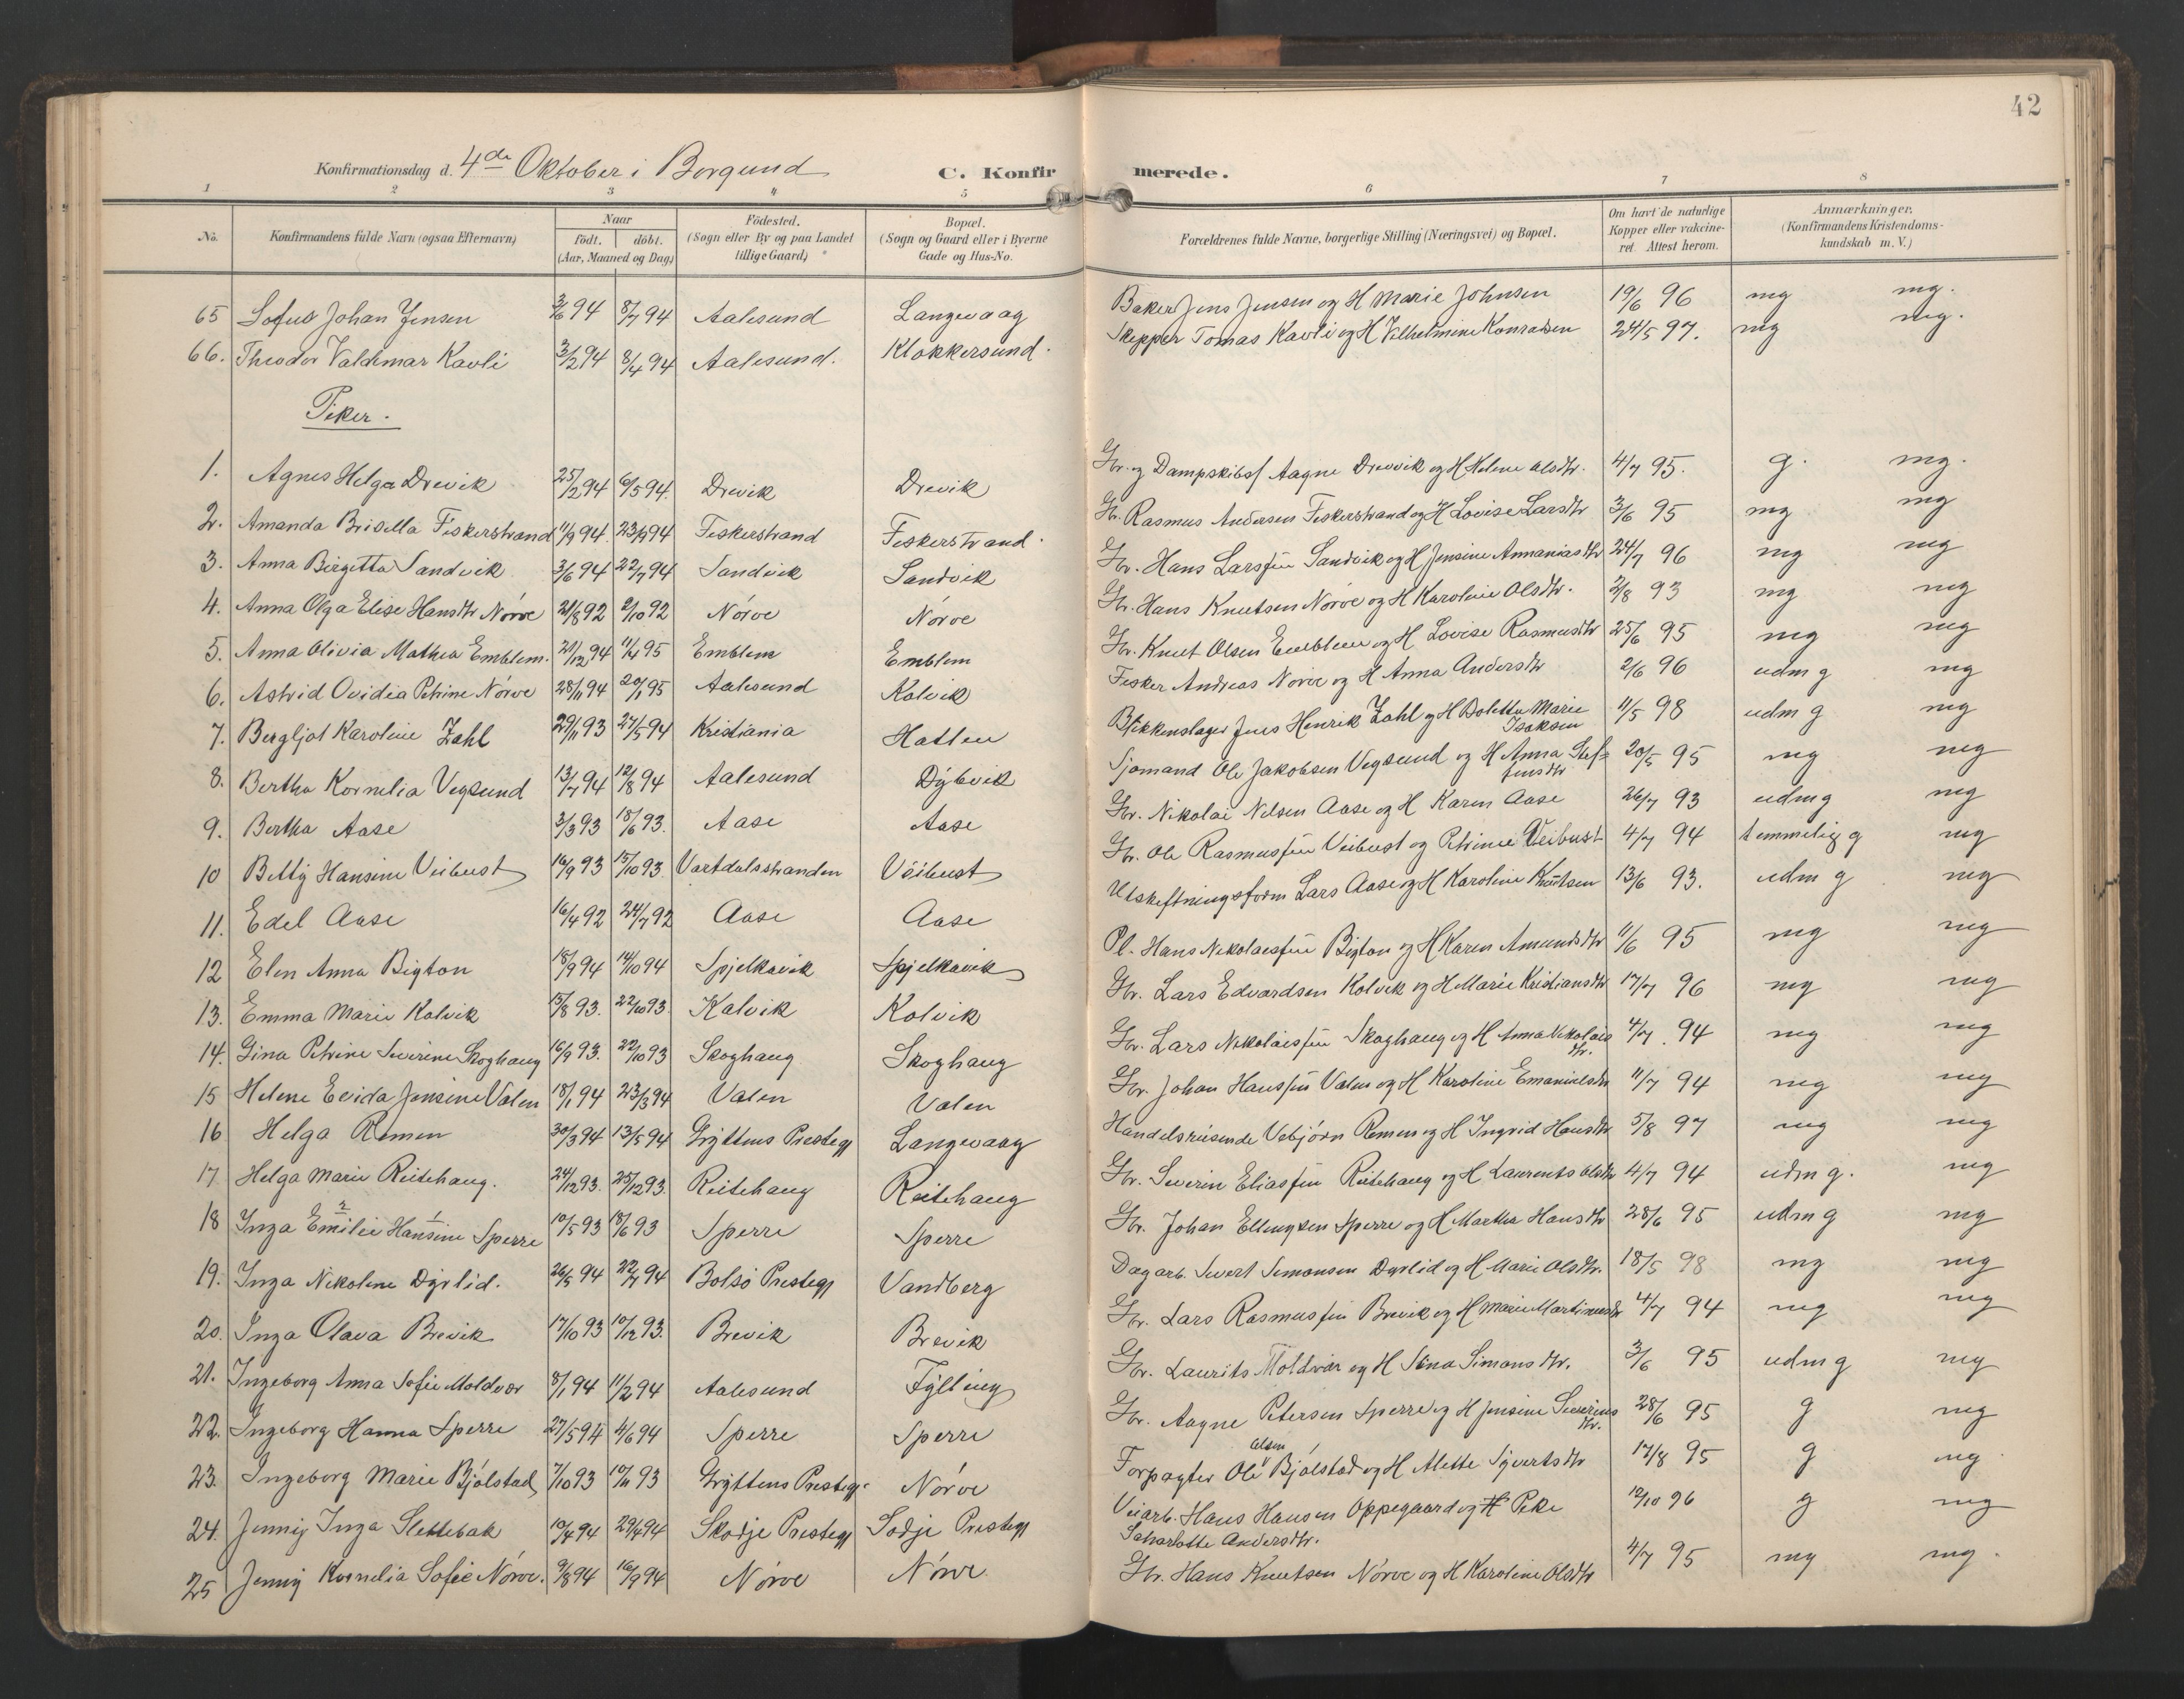 42
Konfirmationsdag d. 4de Oktober i Borgund C. Konfirmerede.
1 2 3 4 5 6 7 8
No. Konfirmandens fulde Navn (ogsaa Efternavn) Naar födt. döbt. (Aar, Maaned og Dag) Födested. (Sogn eller By og paa Landet tillige Gaard) Bopæl. (Sogn og Gaard eller i Byerne Gade og Hus-No. Forældrenes fulde Navne, borgerlige Stilling (Næringsvei) og Bopæl. Om havt de naturlige Kopper eller vakcineret. Attest herom. Anmærkninger. (Konfirmandens Kristendomskundskab m. V.)
65 Sofus Johan Jensen 3/6 94 8/7 94 Aalesund Langevaag Baker Jens Jensen og H Marie Johnsen 19/6 96 mg mg.
66. Theodor Valdemar Kavli 3/2 94 8/4 94 Aalesund. Klokkersund. Skipper Tomas Kavli og H Vilhelmine Konradsen 24/5 97. mg mg.
Piker.
1. Agnes Helga Drevik 25/2 94 6/5 94. Drevik Drevik Gbr. og Dampskibsf Aagne Drevvik og H Helene Olsdtr. 4/7 95. g. mg.
2. Amanda Brisella Fiskerstrand 11/9 94. 23/9 94 Fiskerstrand Fiskerstrand. Gbr. Rasmus Andersen Fiskerstrand og H Lovise Larsdtr 3/6 95 mg mg
3. Anna Birgitta Sandvik 3/6 94 22/7 94 Sandvik Sandvik Gbr. Hans Larssen Sandvik og H Jensine Annaniasdtr 24/7 96 mg mg
4. Anna Olga Elise Hansdtr Nörve 21/8 92 2/10 92 Nörve Nörve Gbr. Hans Knutsen Nörve og H Karoline Olsdtr. 2/8 93 mg mg
5. Anna Olivia Mathea Emblem. 21/12 94 11/4 95 Emblem Emblem Gbr. Knut Olsen Emblem og H Lovise Rasmusdtr 25/6 95 mg mg
6. Astrid Ovidia Petrine Nörve 28/11 94 20/1 95 Aalesund Kolvik Fisker Andreas Nörve og H Anna Andersdtr 2/6 96 udm g mg
7. Bergljot Karoline Zahl 29/11 93 27/5 94 Kristiania Hatlen Blikkenslager Jens Henrik Zahl og H Boletta Marie Isaksen 11/5 98 udm g mg
8. Bertha Kornelia Vegsund 13/7 94 12/8 94 Aalesund Dybvik Sjømand Ole Jakobsen Vegsund og H Anna Steffensdtr 20/5 95 mg mg
9. Bertha Aase 3/3 93 18/6 93. Aase Aase Gbr. Nikolai Nilsen Aase og H Karen Aase 26/7 93 udm g mg
10 Betty Hansine Veibust 16/9 93 15/10 93. Vartdalsstranden Veibust Gbr. Ole Rasmussen Veibust og Petrine Veibust 4/7 94 temmelig g mg
11. Edel Aase 16/4 92 24/7 92 Aase Aase Utskiftningsform Lars Aase og H Karoline Knutsen 13/6 93. udm g mg
12 Elen Anna Bigton 18/9 94 14/10 94 Spjelkavik Spjelkavik Pl. Hans Nikolaissen Bigton og H Karen Amundsdtr 11/6 95 mg mg
13. Emma Marie Kalvik 15/8 93. 22/10 93. Kalvik Kolvik Gbr. Lars Edvardsen Kolvik og H Marie Kristiansdtr 17/7 96 mg mg
14. Gina Petrine Severine Skoghaug 16/9 93. 22/10 93 Skoghaug Skoghaug Gbr. Lars Nikolaissen Skoghaug og H Anna Nikolaisdtr. 4/7. 94 mg mg
15 Helene Evida Jensine Valen 18/1 94 23/3 94 Valen Valen Gbr. Johan Hanssen Valen og H Karoline Emanuelsdtr 11/7 94 mg mg
16 Helga Remen 30/3 94 13/5 94 Gryttens Prestegj Langevaag Handelsreisende Vebjörn Remen og H Ingrid Hansdtr 5/8 97 mg mg
17 Helga Marie Reitehaug. 24/12 93. 25/12 93. Reitehaug Reitehaug Gbr. Severin Eliassen Reitehaug og H Laurentse Olsdtr 4/7 94 udm g. mg
18 Inga 2 Emilie 1 Hansine Sperre 10/5 93 18/6 93 Sperre Sperre Gbr. Johan Ellingsen Sperre og H Martha Hansdtr 28/6 95 udm g mg
19. Inga Nikoline Dyrlid. 26/5 94 22/7 94 Bolsö Prestegj Vandberg Dagarb. Sivert Simonsen Dyrlid og H Marie Olsdtr. 18/5 98 mg mg
20. Inga Olava Brevik 17/10 93 10/12 93. Brevik Brevik Gbr. Lars Rasmussen Brevik og H Marie Martinusdtr 4/7 94 mg mg
21. Ingeborg Anna Sofie Moldvær 8/1 94 11/2 94 Aalesund Fylling Gbr. Laurits Moldvær og H Stina Simonsdtr. 3/6 95 udm g mg
22. Ingeborg Hanna Sperre 27/5 94 4/6 94 Sperre Sperre Gbr. Aagne Petersen Sperre og H Jensine Severinsdtr. 28/6 95 g mg
23. Ingeborg Marie Bjölstad 7/10 93 10/11 93 Gryttens Prestegj. Nörve Forpagter Ole Olsen Bjölstad og H Mette Syvertsdtr 17/8 95 g mg
24. Jenny Inga Slettebak 10/4 94 29/4 94 Skodje Prestegj Sodje Prestegj Veiarb. Hans Hansen Oppegaard og H Pike Scharlotte Andersdtr. 12/10 96 g mg
25 Jenny Kornelia Sofie Nörve. 9/8 94 16/9 94 Nörve Nörve. Gbr. Hans Knutsen Nörve og H Karoline Olsdtr 4/7 95 mg mg.